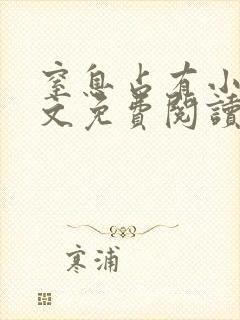 窒息占有小
文免費閱讀
寒浦